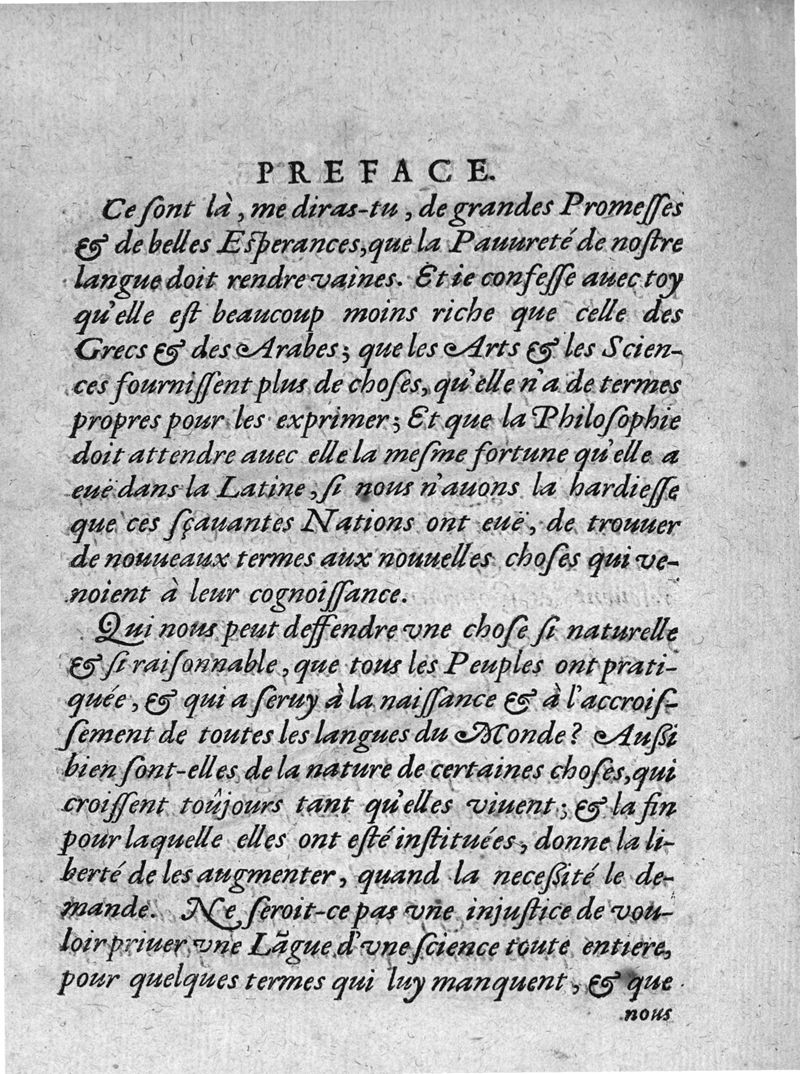 PREFACE.
Ce ſont là, me diras-tu, de grandes Promeſſes
& de belles Eſperances, que la Pauureté de noſtre
langue doit rendre vaines. Et ie confeſſe auec toy
qu'elle eſt beaucoup moins riche que celle des
Grecs & des Arabes; que les Arts & les Scien-
ces fourniſſent plus de choſes, qu'elle n'a de termes
propres pour les exprimer; Et que la Philoſophie
doit attendre auec elle la meſme fortune qu'elle a
euë dans la Latine, ſi nous n'auons la hardieſſe
que ces ſçauantes Nations ont euë, de trouuer
de nouueaux termes aux nouuelles choſes qui ve-
noient à leur cognoiſſance.
Qui nous peut deffendre vne choſe ſi naturelle
& ſi raiſonnable, que tous les Peuples ont prati-
quée, & qui a ſeruy à la naiſſance & à l'accroiſ-
ſement de toutes les langues du Monde? Auſſi
bien ſont-elles de la nature de certaines choſes, qui
croiſſent toûjours tant qu'elles viuent; & la fin
pour laquelle elles ont eſté inſtituées, donne la li-
berté de les augmenter, quand la neceſſité le de-
mande. Ne ſeroit-ce pas vne injuſtice de vou-
loir priuer vne Lãgue d'vne ſcience toute entiere,
pour quelques termes qui luy manquent, & que
nous